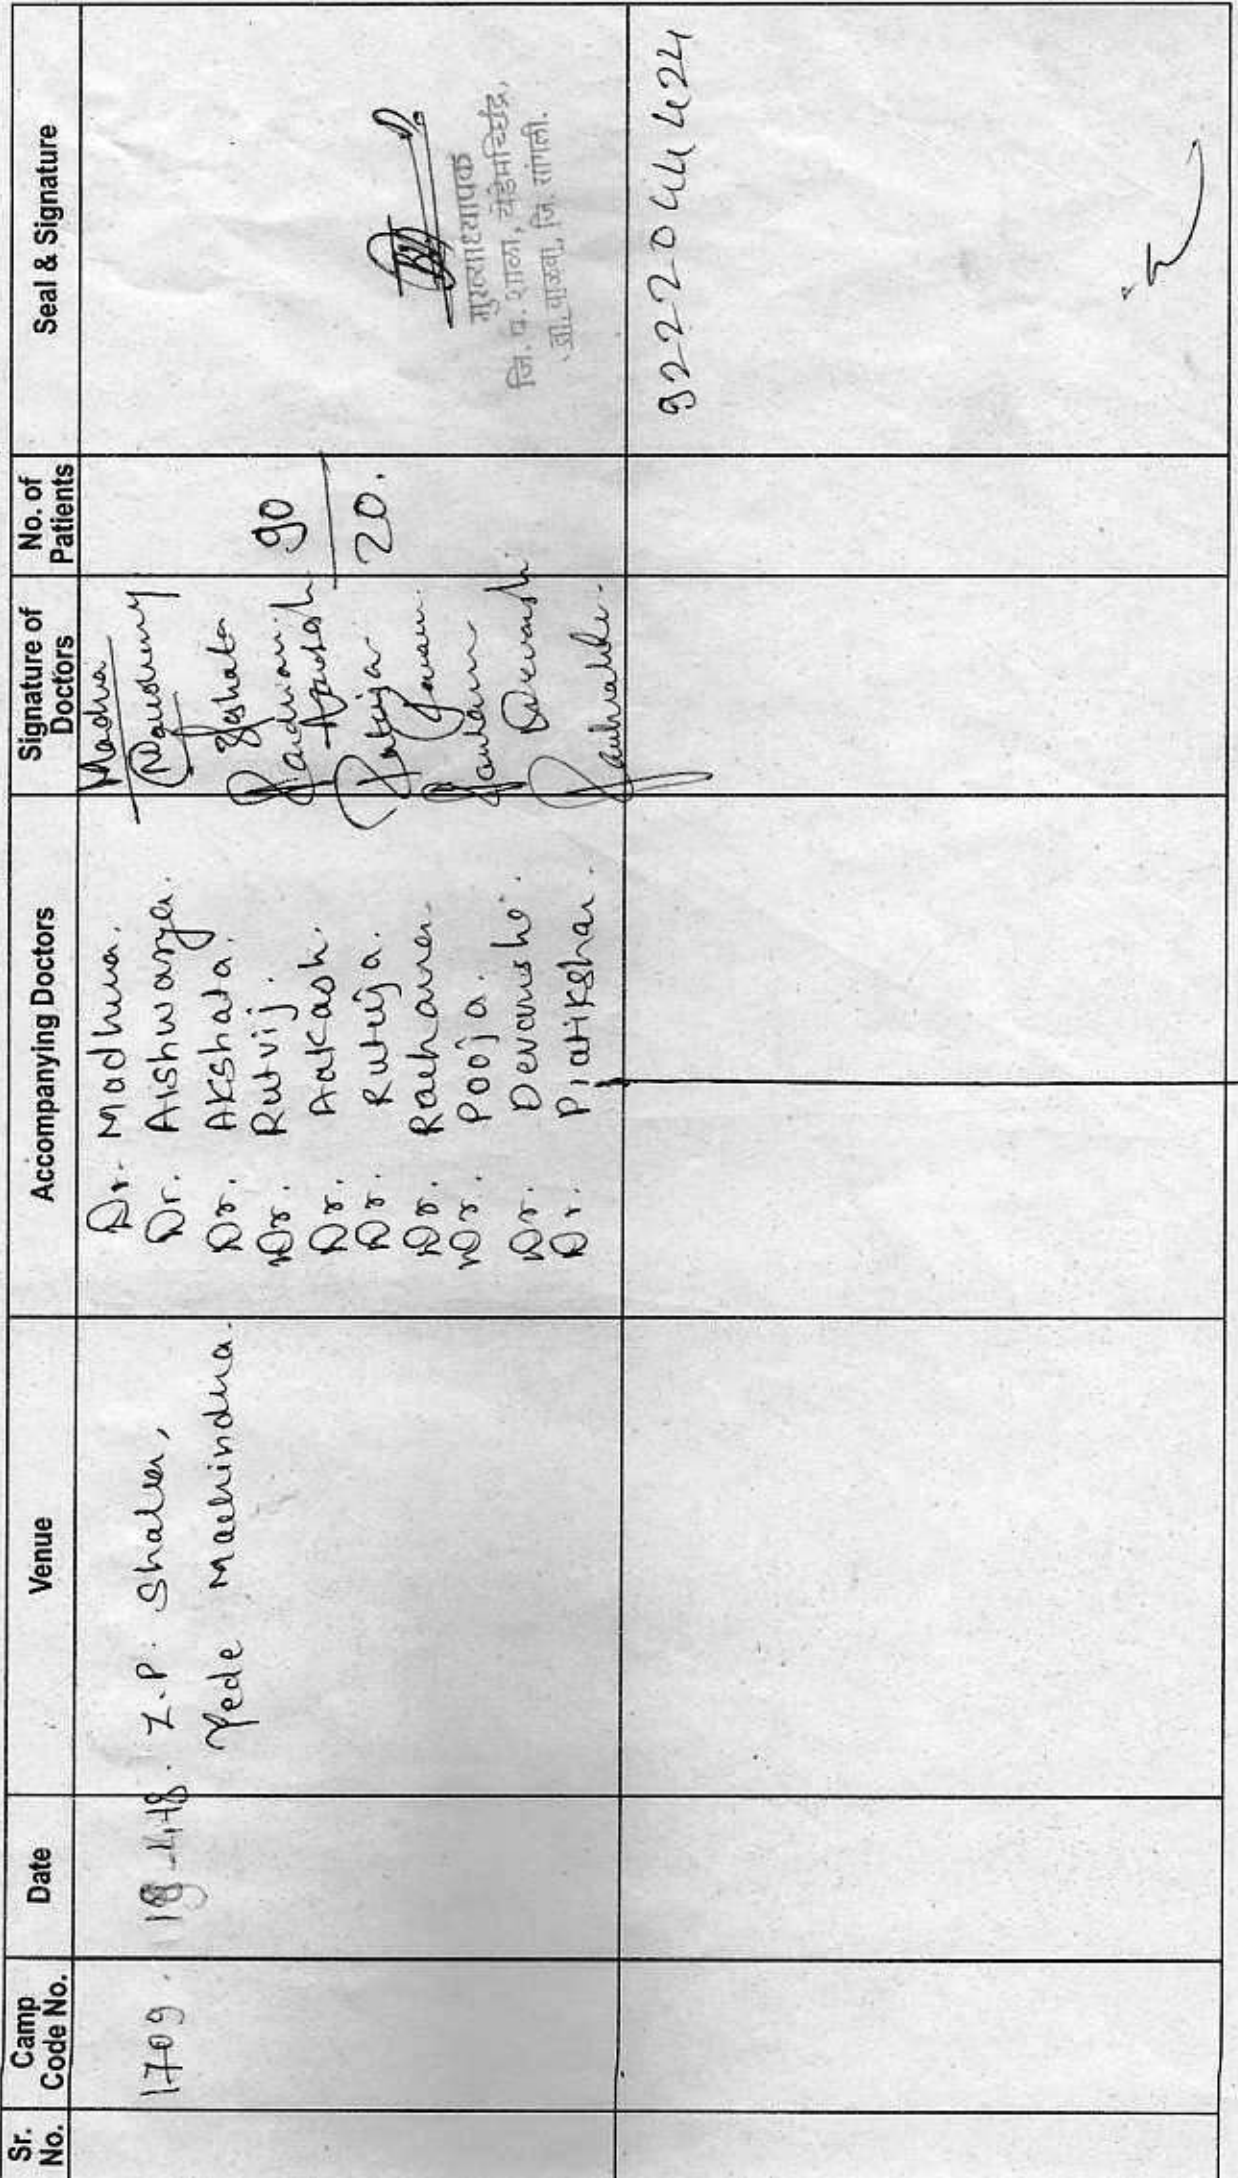 Sr. No.
Camp Code No.
Date
Venue
Accompanying Doctors
Signature of Doctors
No. of Patients
Seal & Signature
1709.
Z.P. Shala,
Yede Machindra.
Dr. Madhura.
Dr. Aishwarya.
Dr. Akshata.
Dr. Rutvij.
Dr. Aakash.
Dr. Rutuja.
Dr. Rachana.
Dr. Pooja.
Dr. Devanshi.
Dr. Pratiksha.
90
20.
मुख्याध्यापक
जि. प. शाळा, येडेमच्छिंद्र,
ता. वाळवा, जि. सांगली.
9222044424